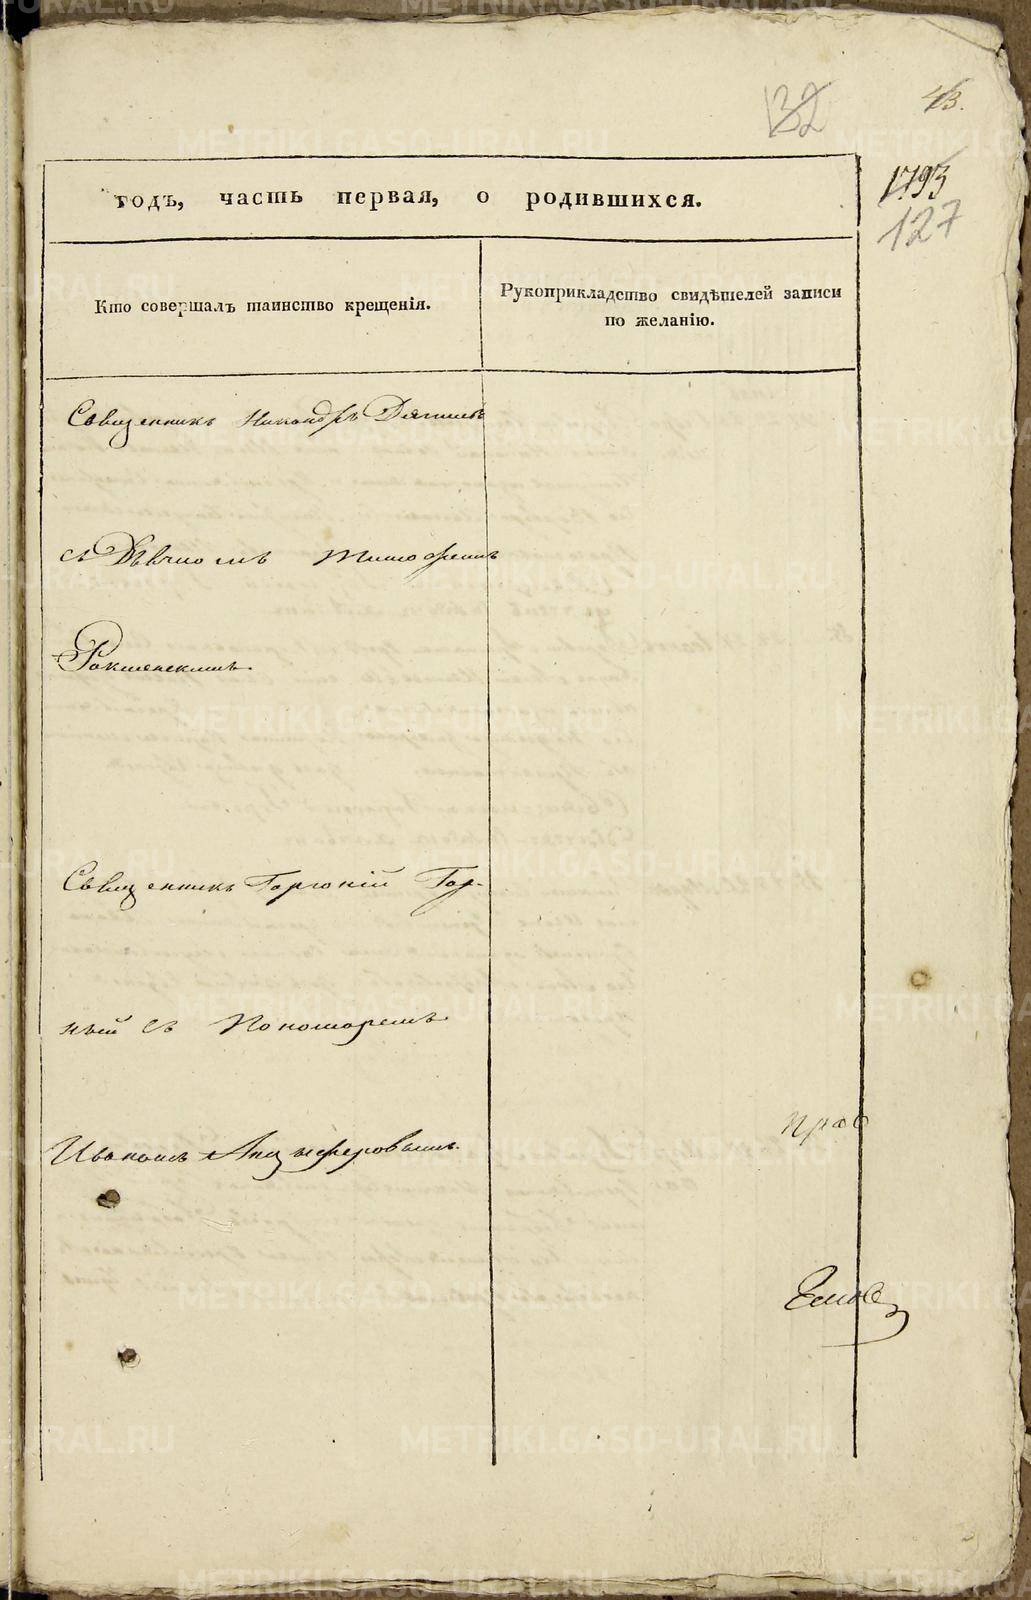 43.
132
1793
127
годъ, часть первая, о родившихся.
Кто совершалъ таинство крещенія.
Рукоприкладство свидѣтелей записи
по желанію.
Священникъ Никандръ Дягилевъ
съ Дьячкомъ Тимофеемъ
Рокшенскимъ.
Священникъ Горгоній Гор-
ный съ Пономаремъ
Иваномъ Анциферовымъ.
METRIKI.GASO-URAL.RU